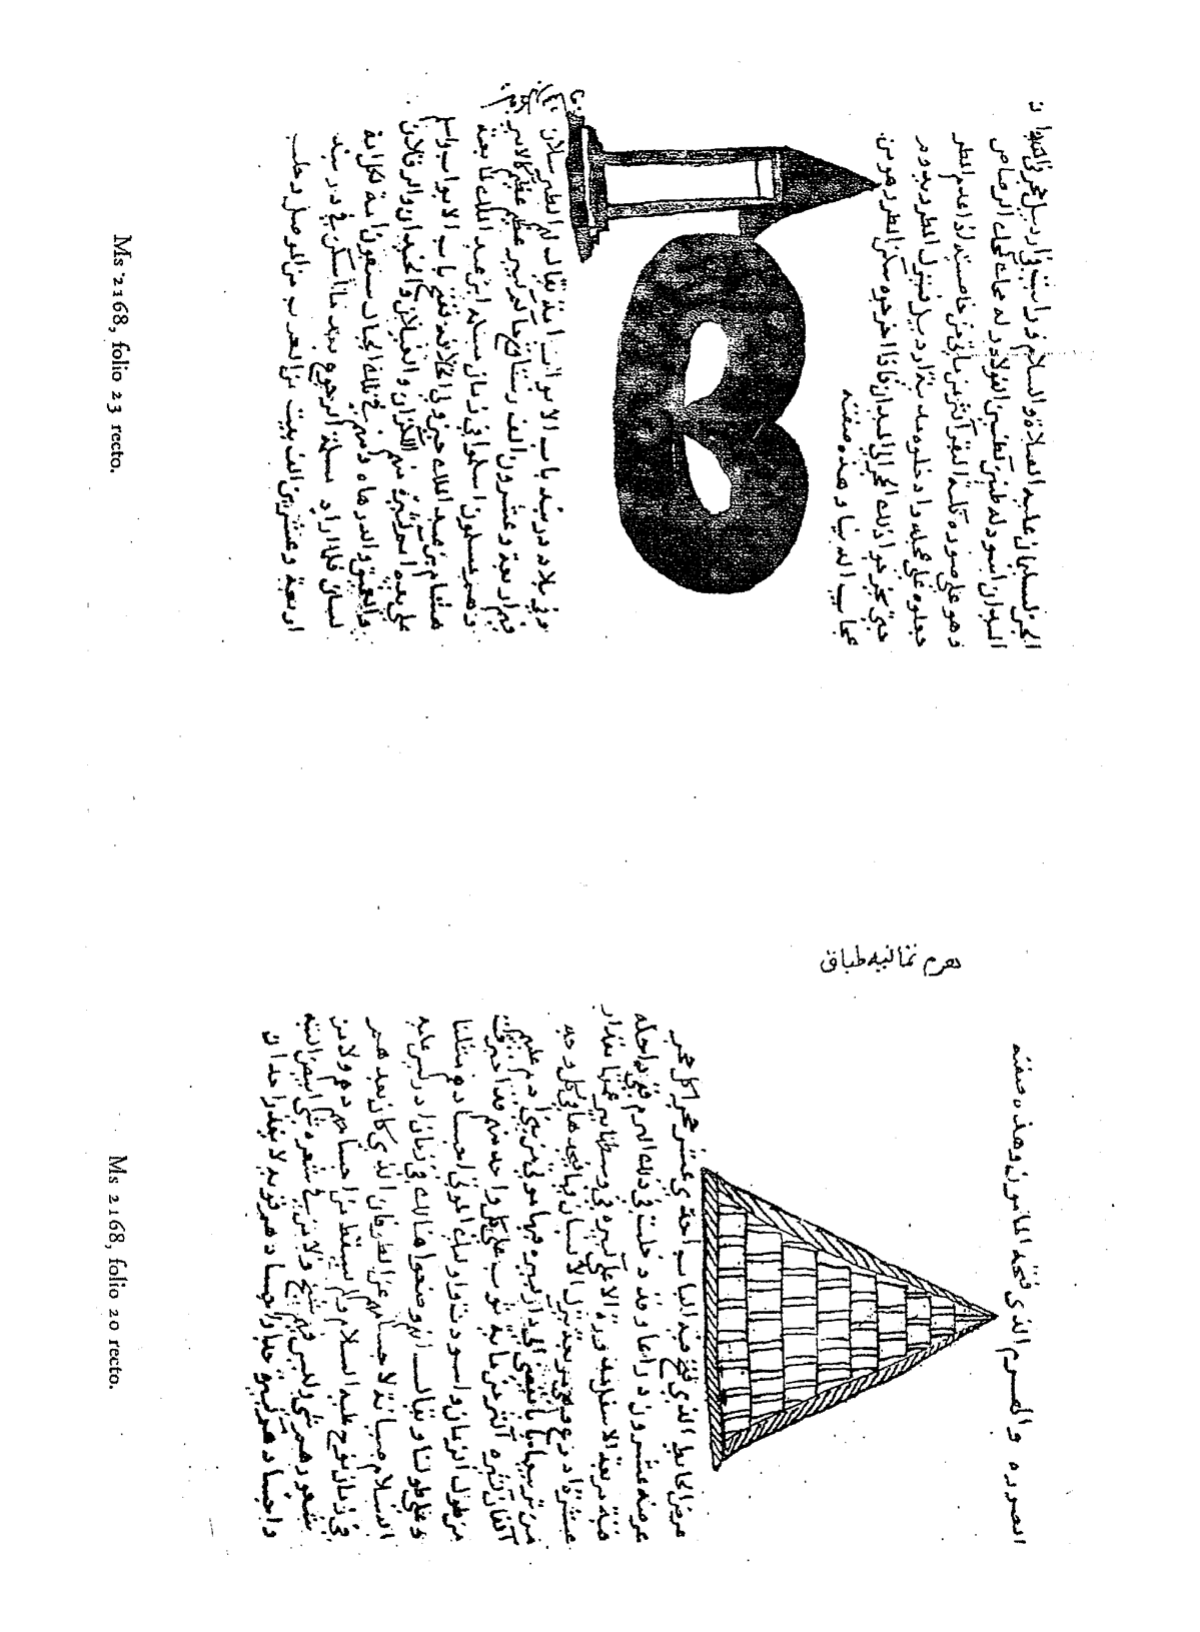 لسليمان عليه الصلاة والسلام ورايت فى اردبيل حجرا
الميدان اسود له طنين كطنين الفولاذ الرصاص
وهو على صورة كلية البقر اكثر من خاصيته اذا عدم المطر
جعلوه على عجله وادخلوه مدينة اردبيل فينزل المطر ويدوم
حتى يخرجوا ذلك الحجر الى الميدان فاذا اخرجوه سكن المطر وهو من
عجايب الدنيا وهذه صفته
وفى بلاد دربند باب الابواب امة يقال لهم الطبرسلان
فيهم اربعة وعشرون الف رستاق كبير عظيم كالامير
وهم مسلمون اسلموا فى زمان مسلمة ابن عبد الملك لما بعثه
هشام بن عبد الملك حين ولى الخلافة ففتح باب الابواب واسلم
على يديه امم كثيرة منهم اللكزان والفيلان والخيدان والرقلان
والغميق والدرهاه وهم فى تلك الجبال سبعون امة لكل امة
لسان فلما اراد مسلمة الرجوع بعد ما اسكن فى دربند
اربعة وعشرين الف بيت من العرب من الموصل وحلب
Ms 2168, folio 23 recto.
الصوره والهرم الذى فتحه المامون وهذه صفته
هرم ثمانيه طباق
عرض الحايط الذى فتح فيه الباب احدى عشر حجرا كل حجر
عرضه عشرون ذراعا وقد دخلت فى ذلك الهرم داخله
قبة مربعة الاسفل مدورة الاعلى كبيره فى وسطها بير عمقها مقدار
عشرة اذرع وهى مربعة ينزل الانسان فيها فى كل وجه
من تربيعها بابا يفضى الى دار كبيره فيها موتى من بنى ادم عليهم
اكفان كثيره اكثر من ماية ثوب على كل واحد منهم قد
من طول الزمان واسودت واولئك الموتى اجسادهم مثلنا
وعلى طولنا ويقال انهم وضعوا هنالك فى زمان ادريس عليه
السلام صيانة لاجسامهم عن الطوفان الذى كان بعدهم
فى زمان نوح عليه السلام ولم يسقط من اجسامهم دم ولا من
شعورهم شى وليس فيهم شيخ ولا من فى شعره شى ابيض البتة
واجسادهم قويه لا يقدر احد ان
Ms 2168, folio 20 recto.